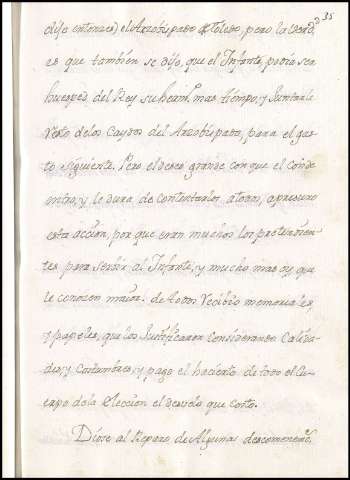 35
dijo entonces) el Arzobispado de Toledo, pero la verd.
es que tambien se dijo, que el Infante, podria ser
huesped del Rey su herm.º mas tiempo, y Juntarle
Resto delos Caydos del Arzobispado, para el gas
to siguiente. Pero el deseo grande con que el Conde
entro, y le dura de contentarlos, atodos, apresuro
esta accion, por que eran muchos los pretendien
tes para servir al Infante, y mucho mas oy que
le conozen maior. de todos Recibio memoriales,
y papeles, que los Justificaron considerando Calida
des, y Costumbres, y pago el hacierto de todo el Cu
erpo dela Eleccion el desvelo que costo.
Diose al Reparo de Algunas descomened.